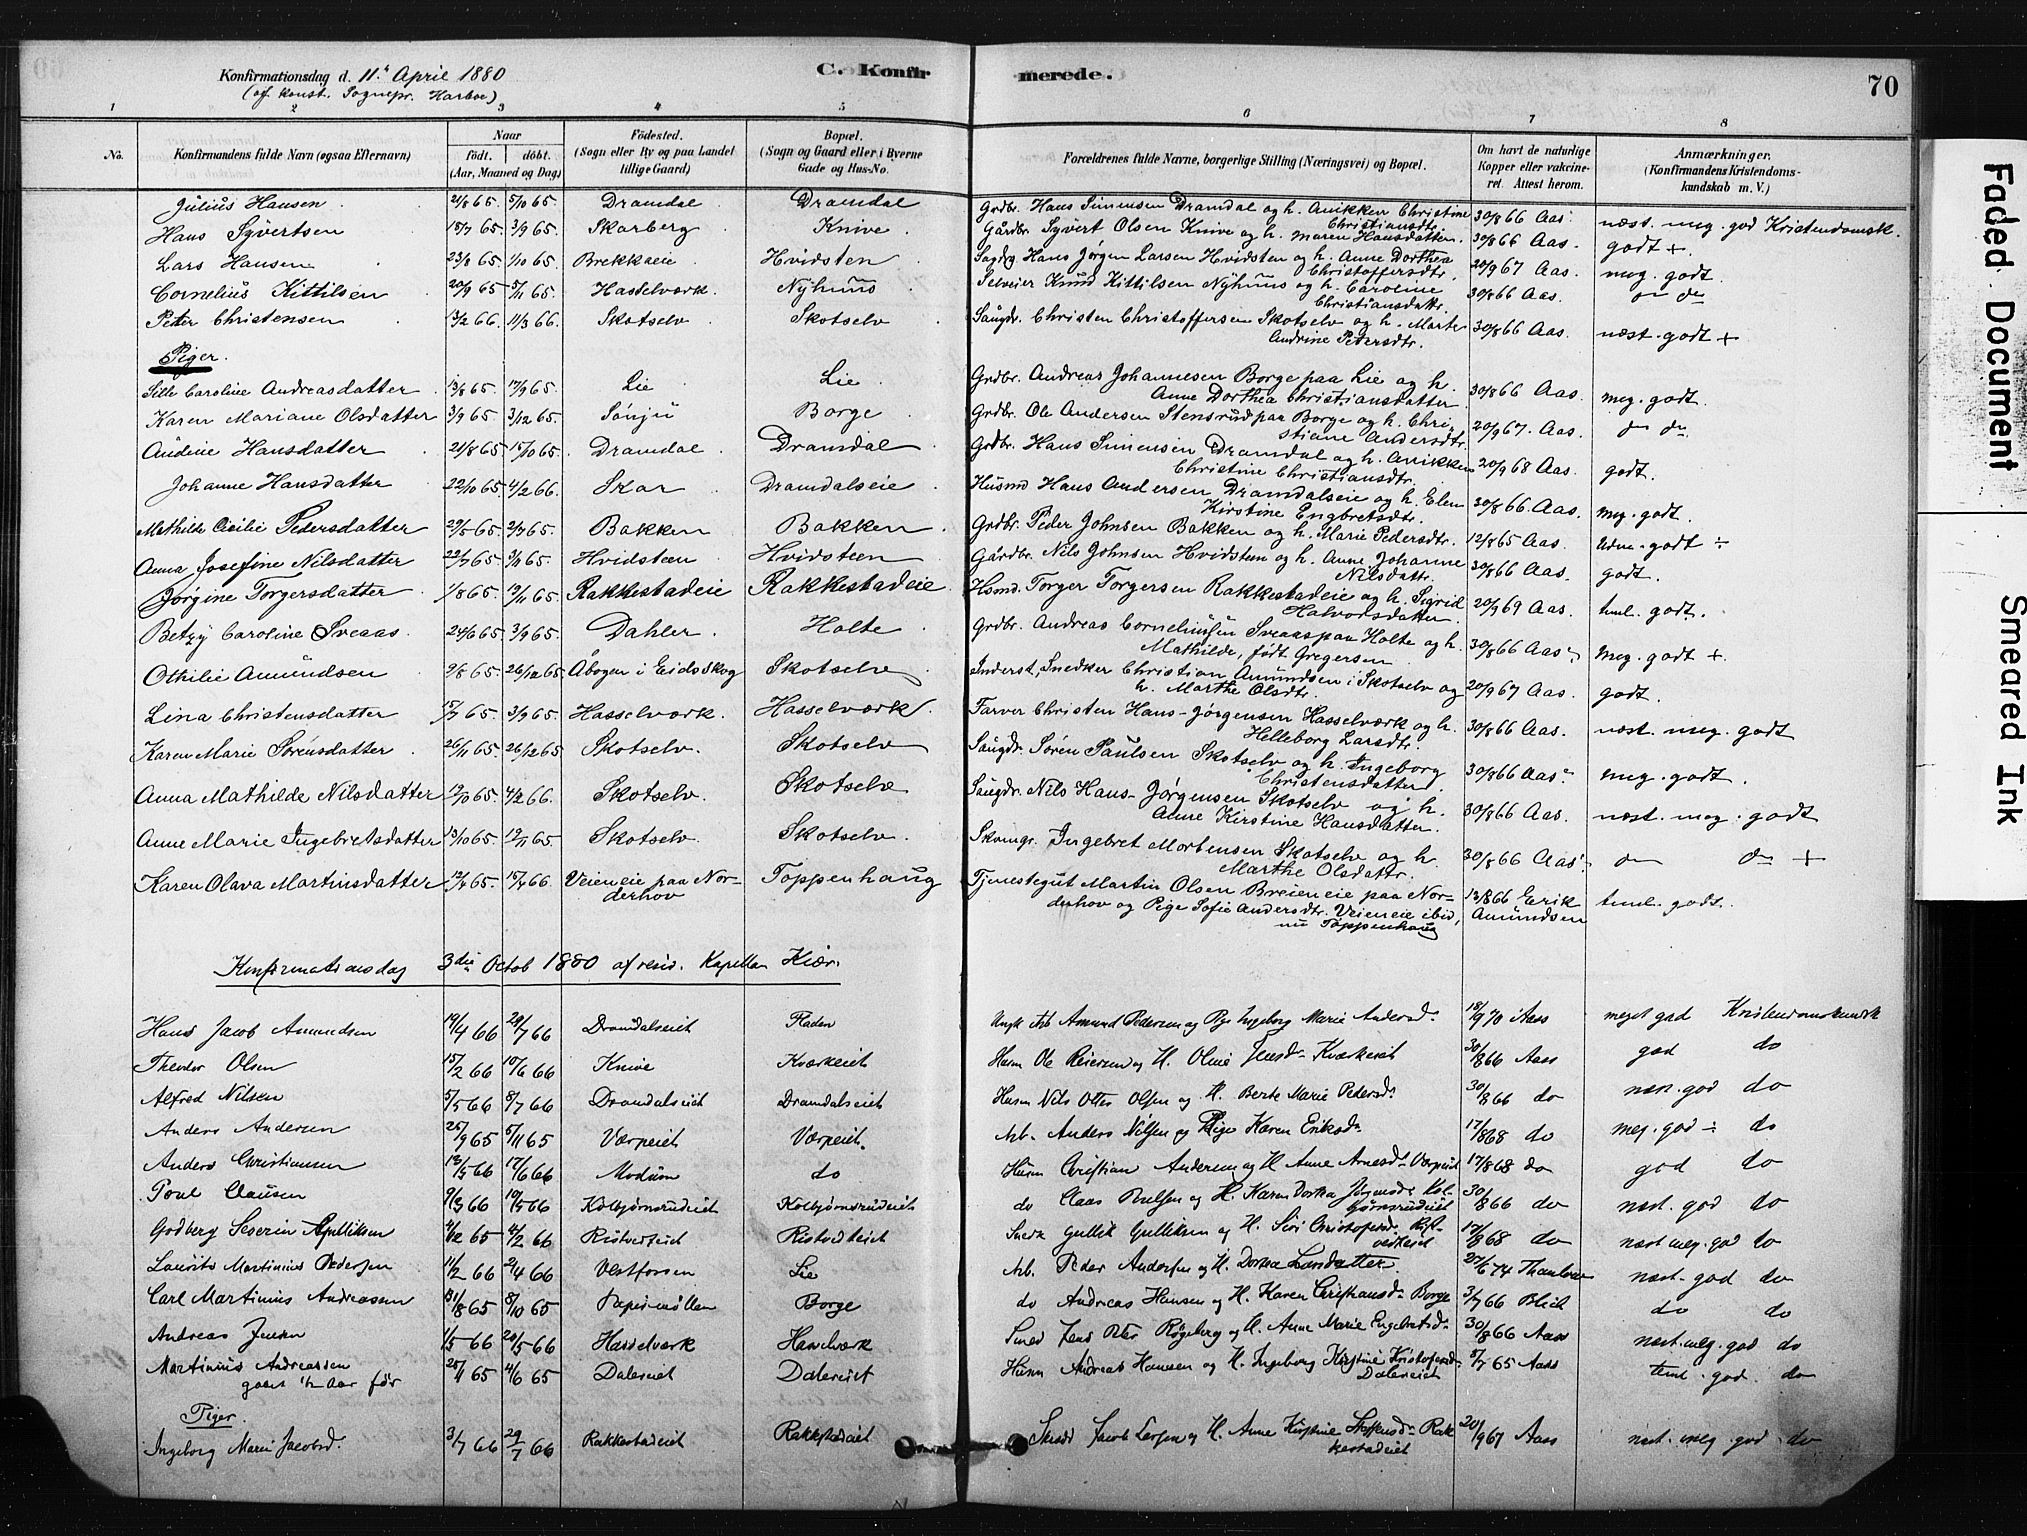 Konfirmationsdag d. 11te April 1880
(af konst. Sognepr. Harboe)
C. Konfir
merede.
70
1 2 3 4 5 6 7 8
No.
Konfirmandens fulde Navn (ogsaa Efternavn)
Naar
födt. döbt.
(Aar, Maaned og Dag)
Födested.
(Sogn eller By og paa Landet
tillige Gaard)
Bopæl.
(Sogn og Gaard eller i Byerne
Gade og Hus-No.
Forældrenes fulde Navne, borgerlige Stilling (Næringsvei) og Bopæl.
Om havt de naturlige
Kopper eller vakcine-
ret. Attest herom.
Anmærkninger.
(Konfirmandens Kristendoms-
kundskab m. V.)
Julius Hansen 21/8 65. 5/10 65. Dramdal Dramdal Grdbr. Hans Simensen Dramdal og h. Anikken Christine Christiansdtr. 30/8 66 Aas. næst. meg. god Kristendomsk.
Hans Syvertsen 18/7 65. 3/9 65. Skarberg Knive Gårdbr. Syvert Olsen Knive og h. Maren Hansdatter. 30/8 66 Aas. godt +
Lars Hansen 23/8 65. 1/10 65. Brekkaeie Hvidsten Hans Jørgen Larsen Hvidsten og h. Anne Dorthea Christoffersdtr. 20/9 67 Aas. meg. godt
Cornelius Kittilsen 20/9 65 5/11 65. Hasselværk. Nyhuus Selveier Knud Kittilsen Nyhuus og h. Caroline Christiansdattr. 30/8 66 Aas. do do
Peter Christensen 13/2 66. 11/3 66. Skotselv Skotselv Saugdr. Christen Christoffersen Skotselv og h. Marte Andrine Petersdtr. 30/8 66 Aas. næst. godt +
Piger.
Sille Caroline Andreasdatter 13/8 65. 17/9 65. Lie Lie Grdbr. Andreas Johannesen Borge paa Lie og h. Anne Dorthea Christiansdatter 30/8 66 Aas. meg. godt.
Karen Mariane Olsdatter 3/9 65. 3/12 65. Sønju Borge Grdbr. Ole Andersen Stensrud paa Borge og h. Christiane Andersdtr. 20/9 67. Aas. do do
Audine Hansdatter 21/8 65 15/10 65. Dramdal Dramdal Grdbr. Hans Simensen Dramdal og h. Anikken Christine Christiansdtr. 20/9 68 Aas. godt.
Johanne Hansdatter 22/10 65 4/2 66. Skar Dramdalseie Husmd Hans Andersen Dramdalseie og h. Elen Kirstine Engbretsdtr. 30/8 66 Aas. meg. godt.
Mathilde Cecilie Pedersdatter 29/5 65. 2/7 65. Bakken Bakken Grdbr. Peder Johnsen Bakken og h. Marie Pedersdtr. 12/8 65 Aas. Udm. godt ÷
Anna Josefine Nilsdatter 22/7 65 3/11 65. Hvidsteen Hvidsteen Gårdbr. Nils Johnsen Hvidsteen og h. Anne Johanne Nilsdattr. 30/8 66 Aas. godt.
Jørgine Torgersdatter 1/8 65. 19/11 65. Rakkestadeie Rakkestadeie Hsmd. Torger Torgersen Rakkestadeie og h. Sigrid Halvorsdatter. 20/9 69 Aas. teml. godt.
Betzy Caroline Sveaas 24/6 65. 3/9 65. Dahler Holte Grdbr. Andreas Corneliussen Sveaas paa Holte og h. Mathilde, født Gregersen 30/8 66 Aas. meg. godt +
Othilie Amundsen 9/8 65. 26/12 65. Åbogen i Eidsskog Skotselv Inderst, Snedker Christian Amundsen i Skotselv og h. Marthe Olsdtr. 20/9 67 Aas. godt.
Lina Christensdatter 15/7 65. 3/9 65. Hasselværk. Hasselværk. Farver Christen Hans-Jørgensen Hasselværk og h. Helleborg Larsdtr. 30/8 66 Aas. næst. meg. godt
Karen Marie Sørensdatter 26/11 65. 26/12 65 Skotselv. Skotselv Saugdr. Søren Paulsen Skotselv og h. Ingeborg Christensdatter 30/8 66 Aas. meg. godt.
Anna Mathilde Nilsdatter 12/10 65. 4/2 66. Skotselv. Skotselv Saugdr. Nils Hans-Jørgensen Skotselv og h. Anne Kirstine Hansdatter. 30/8 66 Aas. næst. meg. godt
Anne Marie Ingebretsdatter 13/10 65. 12/11 65. Skotselv Skotselv. Ingebret Mortensen Skotselv og h. Marthe Olsdattr. 30/8 66 Aas. do do +
Karen Olava Martinsdatter 12/4 65. 15/4 66. Veieneie paa Norderhov Toppenhaug Tjenestegut Martin Olsen Breieneie paa Norderhov og Pige Sofie Andersdtr. Veieneie ibid, nu Toppenhaug 13/8 66 Erik Amundsen teml. godt.
Konfirmationsdag 3die Octob 1880 af resid. Kapellan Kiær.
Hans Jacob Amundsen 19/4 66 29/7 66 Dramdalseiet Fladen Ungk Arb Amund Pedersen og Pige Ingeborg Marie Andersd. 18/9 70 Aass meget god Kristendomskundsk
Theodor Olsen 15/2 66 10/6 66 Knive Kværkeiet Husm Ole Reiersen og H. Oline Jensd. Kværkeiet 30/8 66 Aass god do
Alfred Nilsen 5/5 66 8/7 66 Dramdalseiet Dramdalseiet Husm Nils Otter Olsen og H. Berte Marie Pedersd. 30/8 66 do næst. god do
Anders Andersen 25/9 65 5/11 65 Værpeiet Værpeiet. Arb. Anders Nilsen og Pige Karen Eriksd. 17/8 68 do meg. god ÷ do
Anders Christiansen 13/5 66 17/6 66 Modum do Husm Christian Andersen og H. Anne Arnesd. Værpeiet 17/8 68 do god do
Poul Clausen 9/3 66 10/5 66 Kolbjørnsrudeiet Kolbjørnsrudeiet do Claas Poulsen og H. Karen Dortea Jørgensd. Kolbjørnsrudeiet 30/8 66 do næst. god do
Godberg Severin Gulliksen 4/12 65 4/2 66 Ristvedteiet Ristvedteiet Gullik Gulliksen og H. Siri Christofersd. Ristvedteiet 17/8 68 do næst meg. god do
Laurits Martinius Pedersen 11/2 66 2/4 66 Vestfossen Lie Arb. Peder Andersen og H. Dortea Larsdatter. 27/6 74 Thaulow næst. god do
Carl Martinius Andreassen 31/8 65 8/10 65 Papirmøllen Borge do Andreas Hansen og H. Karen Christiansd. Borge 3/7 66 Blich do do
Andreas Jensen 1/5 66 20/5 66 Hasselværk Hasselværk Smed Jens Peter Røgeberg og H. Anne Marie Engebretsd. 30/8 66 Aass næst meg. god do
Martinius Andreassen 25/1 65 4/6 65 Dalereiet Dalereiet Husm Andreas Hansen og H. Ingeborg Kirstine Kristofersd. Dalereiet 5/7 65 Aass teml. god. do
gaaet 1/2 Aar før
Piger.
Ingeborg Marie Jacobsd. 3/7 66 29/7 66 Rakkestadeiet Rakkestadeiet Jacob Larsen og H. Anne Kirstine Steffensd. Rakkestadeiet 20/9 67 Aass næst. meg god do
Faded Document
Smeared Ink